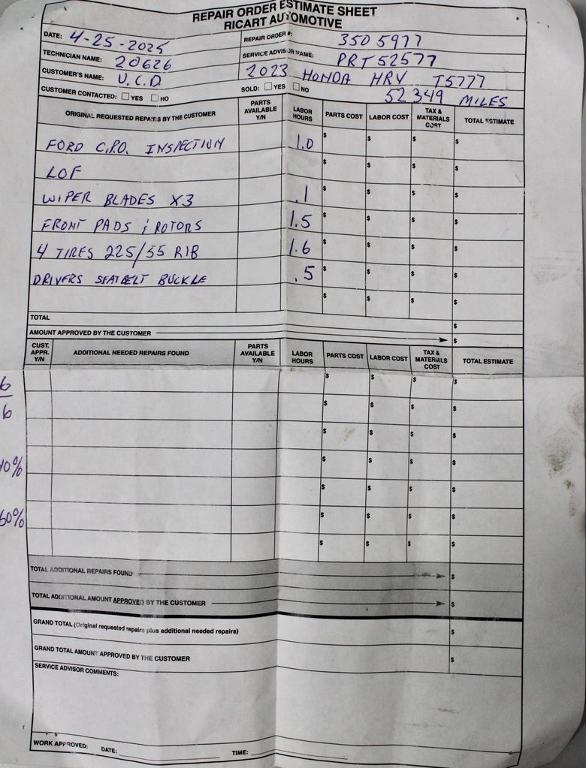 REPAIR ORDER ESTIMATE SHEET
RICART AUTOMOTIVE
DATE: 4-25-2025 REPAIR ORDER #: 3505977
TECHNICIAN NAME: 20626 SERVICE ADVISOR NAME: PRT52577
CUSTOMER'S NAME: U.C.D 2023 HONDA HRV T5777
CUSTOMER CONTACTED: YES NO SOLD: YES NO 52349 MILES
ORIGINAL REQUESTED REPAIRS BY THE CUSTOMER PARTS AVAILABLE Y/N LABOR HOURS PARTS COST LABOR COST TAX & MATERIALS COST TOTAL ESTIMATE
FORD C.P.O. INSPECTION 1.0 $ $ $ $
LOF $ $ $ $
WIPER BLADES X3 .1 $ $ $ $
FRONT PADS & ROTORS 1.5 $ $ $ $
4 TIRES 225/55 R18 1.6 $ $ $ $
DRIVERS SEATBELT BUCKLE .5 $ $ $ $
$ $ $ $
TOTAL $
AMOUNT APPROVED BY THE CUSTOMER $
CUST. APPR. Y/N ADDITIONAL NEEDED REPAIRS FOUND PARTS AVAILABLE Y/N LABOR HOURS PARTS COST LABOR COST TAX & MATERIALS COST TOTAL ESTIMATE
6 $ $ $ $
6 $ $ $ $
$ $ $ $
10% $ $ $ $
$ $ $ $
60% $ $ $ $
$ $ $ $
TOTAL ADDITIONAL REPAIRS FOUND $
TOTAL ADDITIONAL AMOUNT APPROVED BY THE CUSTOMER $
GRAND TOTAL (Original requested repairs plus additional needed repairs) $
GRAND TOTAL AMOUNT APPROVED BY THE CUSTOMER $
SERVICE ADVISOR COMMENTS:
WORK APPROVED: DATE: TIME: